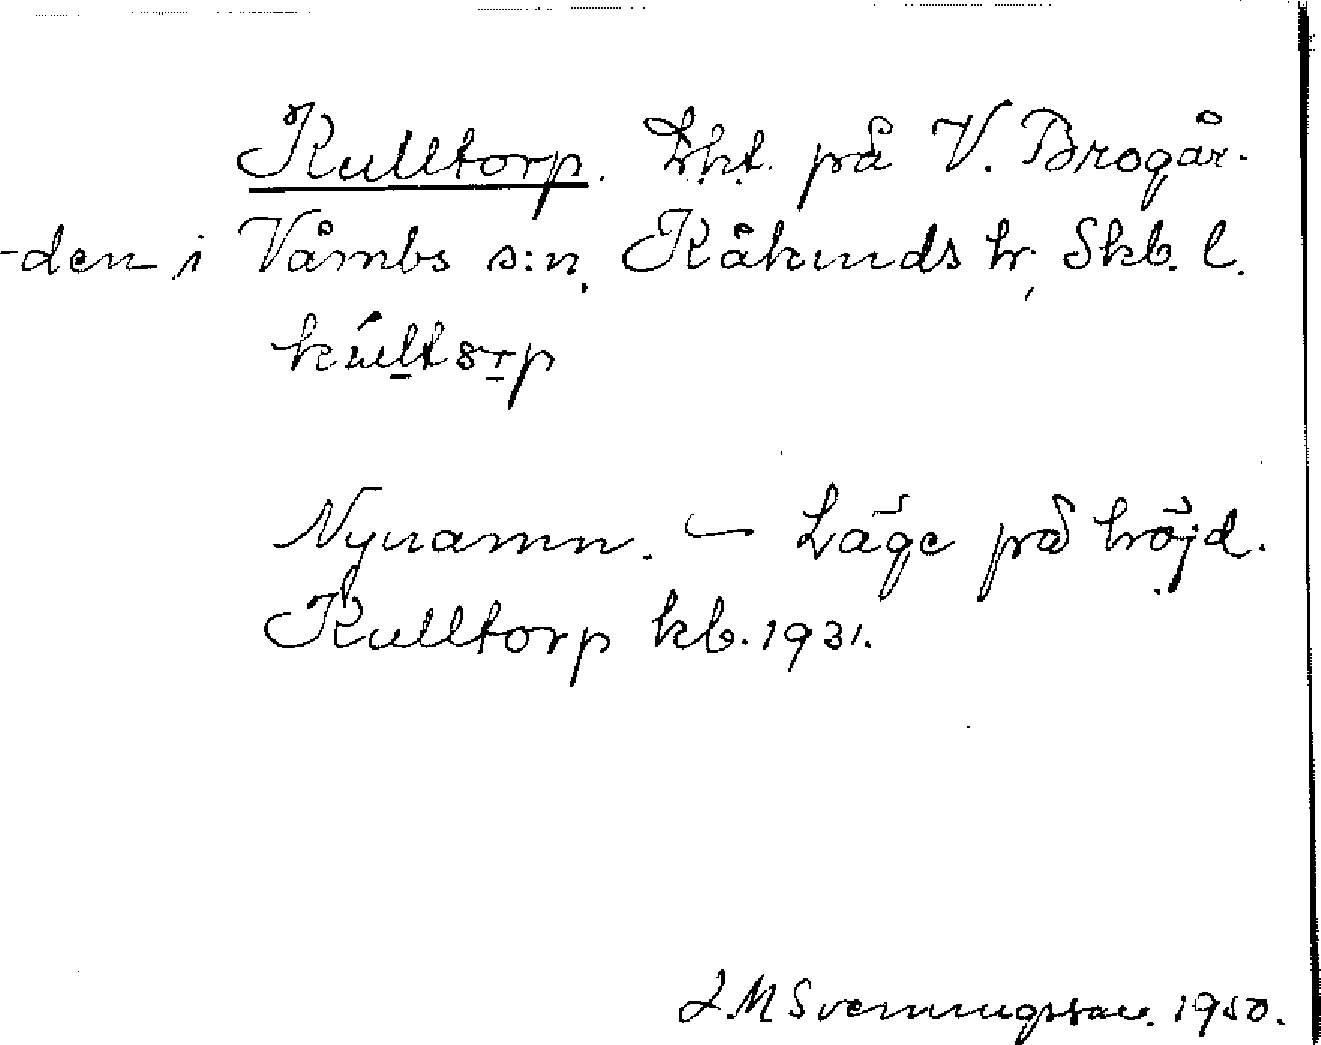 Kulltorp. Lht. på V. Brogår-
-den i Våmbs s:n, Kåkinds hr, Skb. l.
Nynamn. — Läge på höjd.
Kulltorp kb. 1931.
J M Svenningsson. 1950.